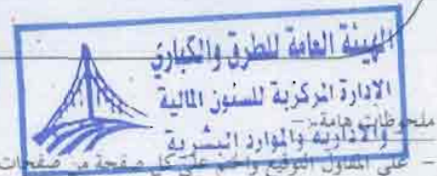 الهيئة العامة للطرق والكباري
الادارة المركزية للسئون المالية
والادارية والموارد البشرية
ملحوظات هامة:-
- على المقاول التوقيع والختم على كل صفحة من صفحات